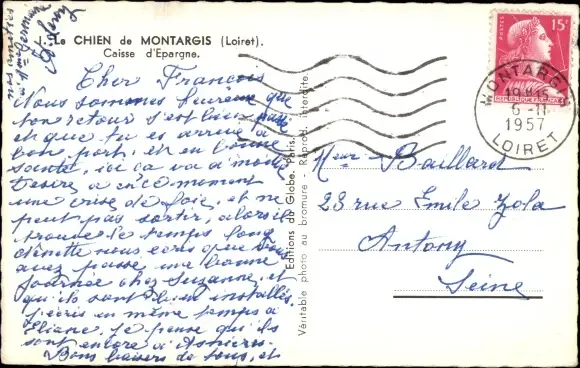 nos amitiés
à Mme Germaine
Le CHIEN de MONTARGIS (Loiret).
Caisse d'Epargne.
Cher François
Nous sommes heureux que
ton retour s'est bien
et que tu es arrivé à
bon port, et en bonne
santé, ici ça va à moitié
Désiré a en ce moment
une crise de foie, et ne
peut pas sortir, alors il
trouve le temps long
Ginette nous écris que vous
avez passé une bonne
journée chez Suzanne, et
qu'ils sont bien installés.
j'écris en même temps à
Eliane, je pense qu'ils
sont encore à Asnières.
Bons baisers de tous, et
Editions du Globe, Paris.
Véritable photo au bromure - Reprod. interdite
POSTES
15F
REPUBLIQUE FRANÇAISE
MONTARGIS
6-11
1957
LOIRET
Meur Baillard
28 rue Emile Zola
Antony
Seine